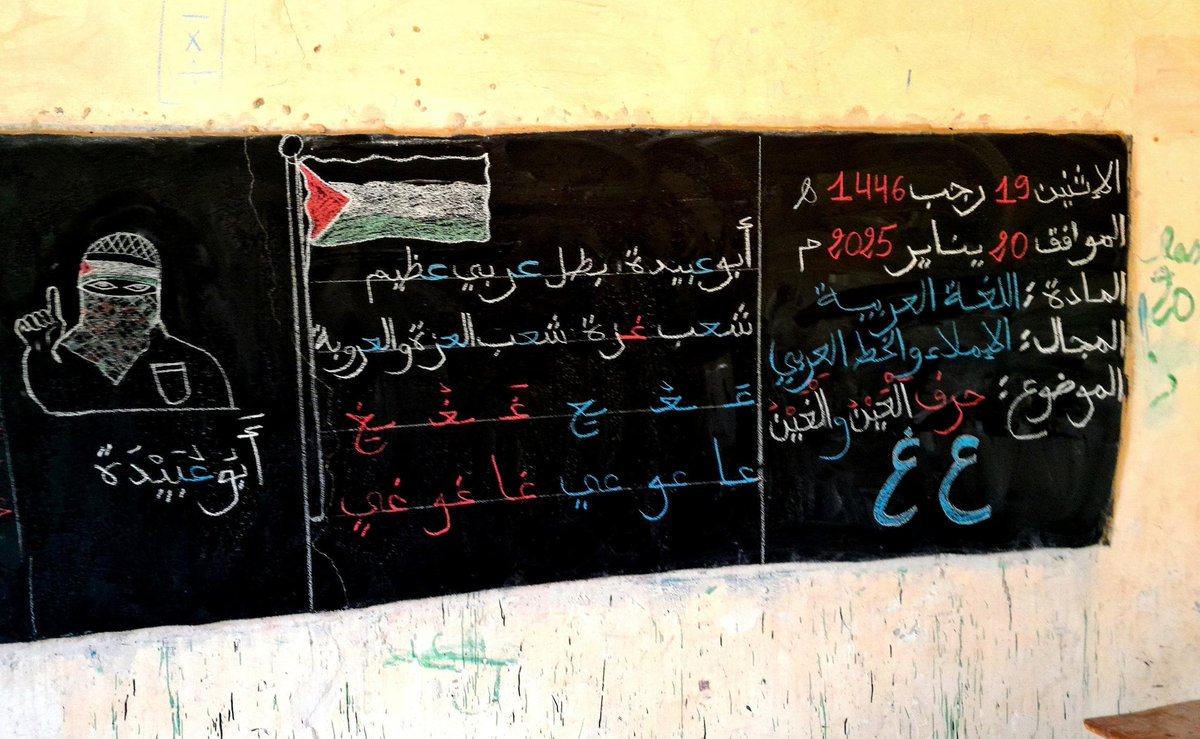 الإثنين 19 رجب 1446 ه
الموافق 20 يناير 2025 م
المادة: اللغة العربية
المجال: الإملاء والخط العربي
الموضوع: حرف الْعَيْن والْغَيْن
ع غ
أبو عبيدة بطل عربي عظيم
شعب غزة شعب العزة والعروبة
عَـ ـعْـ ـع غَـ ـغْـ ـغ
عا عو عي غا غو غي
أَبُو عُبَيْدَة
X